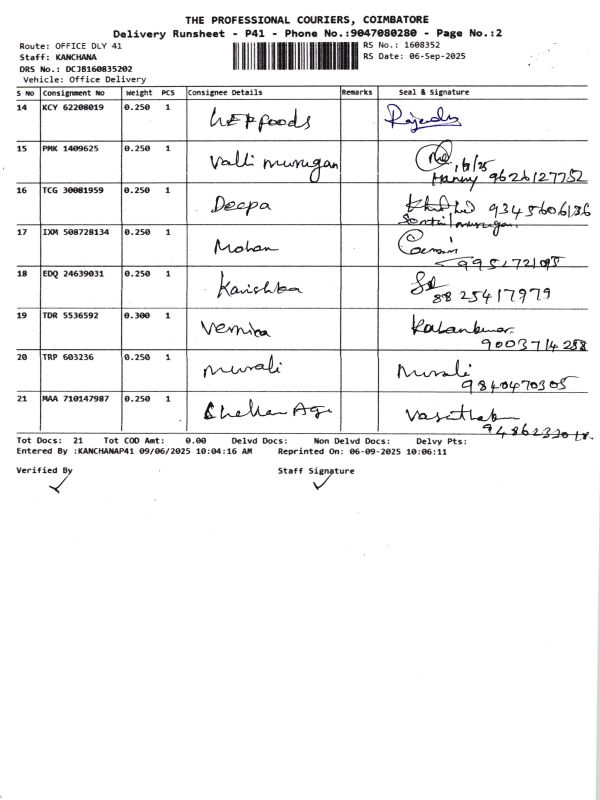 THE PROFESSIONAL COURIERS, COIMBATORE
Delivery Runsheet - P41 - Phone No.:9047080280 - Page No.:2
Route: OFFICE DLY 41
RS No.: 1608352
Staff: KANCHANA
RS Date: 06-Sep-2025
DRS No.: DCJB160835202
Vehicle: Office Delivery
S No Consignment No Weight PCS Consignee Details Remarks Seal & Signature
14 KCY 62208019 0.250 1 foods Rajendra
15 PMK 1409625 0.250 1 Valli murugan
9626127752
16 TCG 30081959 0.250 1 Deepa 9345606136
17 IXM 508728134 0.250 1 Mohan
18 EDQ 24639031 0.250 1 Kanishka
88 25417979
19 TDR 5536592 0.300 1 Vernica
9003714258
20 TRP 603236 0.250 1 murali Murali
9840470305
21 MAA 710147987 0.250 1
Tot Docs: 21 Tot COD Amt: 0.00 Delvd Docs: Non Delvd Docs: Delvy Pts:
Entered By :KANCHANAP41 09/06/2025 10:04:16 AM Reprinted On: 06-09-2025 10:06:11
Verified By Staff Signature